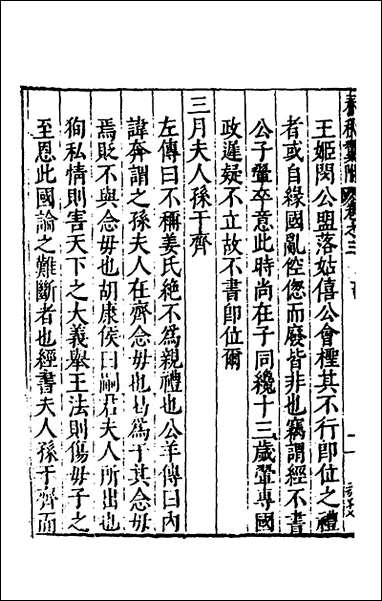 王姬閔公盟落姑僖公會檉其不行即位之禮
者或自緣國亂倥傯而廢皆非也竊謂經不書
公子翬卒意此時尚在子同纔十三歲翬專國
政遲疑不立故不書即位爾
三月夫人孫于齊
左傳曰不稱姜氏絕不為親禮也公羊傳曰內
諱奔謂之孫夫人在齊念毋也曷為于其念毋
焉貶不與念毋也胡康侯曰嗣君夫人所出也
狥私情則害天下之大義舉王法則傷毋子之
至恩此國論之難斷者也經書夫人孫于齊而